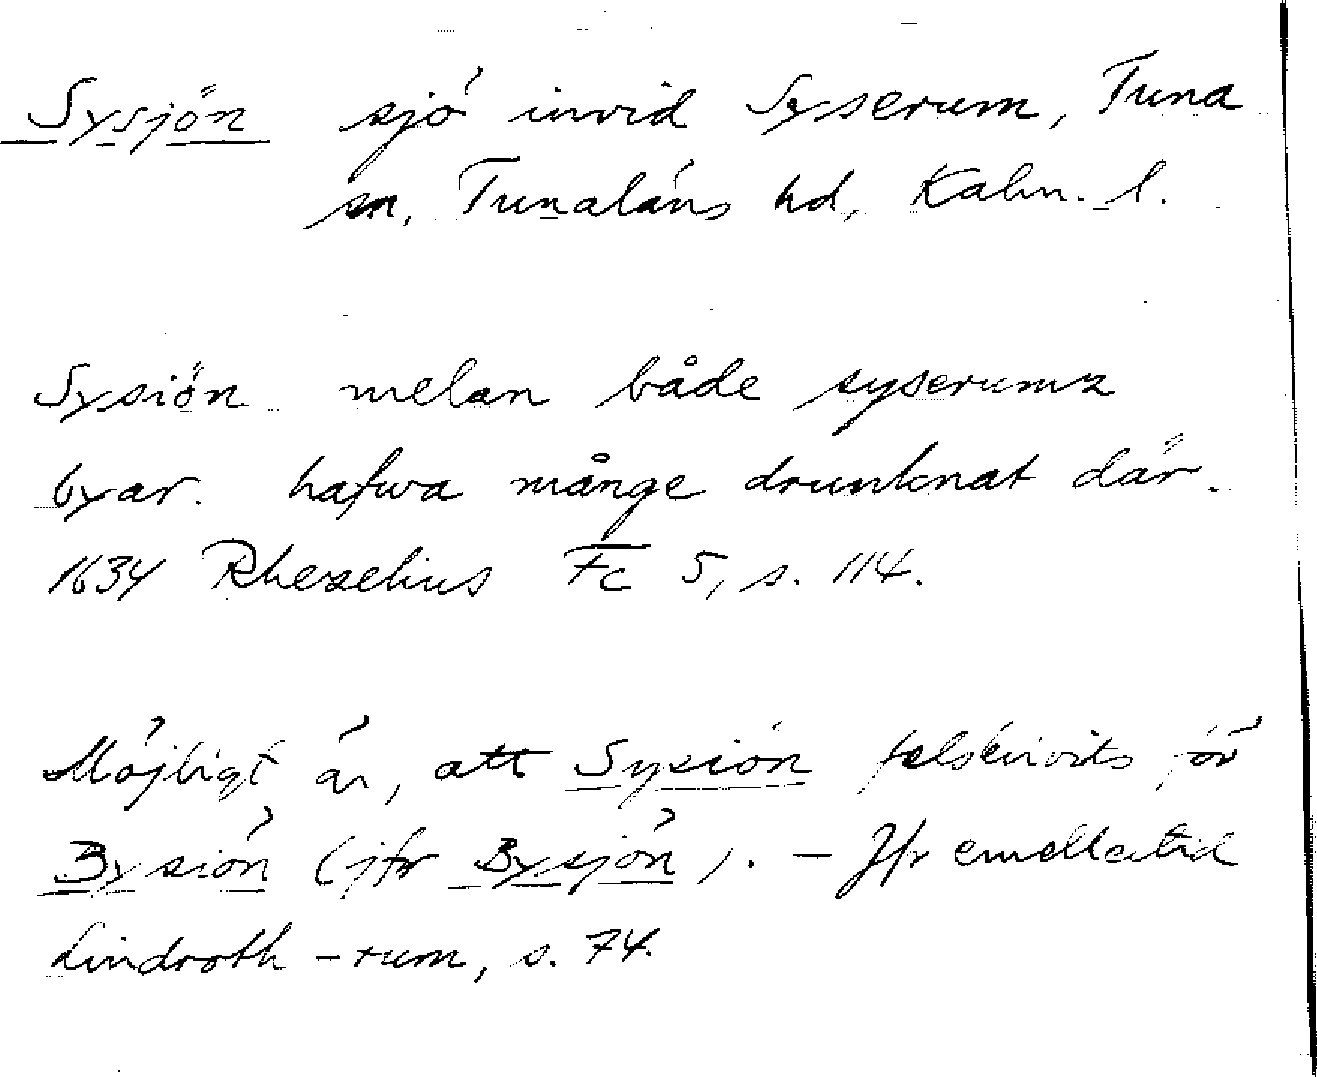 Sysjön sjö invid Syserum, Tuna
sn, Tunaläns hd, Kalm. l.
Sysiön melan både syserumz
byar. hafwa månge drunknat där.
1634 Rhezelius Fc 5, s. 114.
Möjligt är, att Sysiön felskrivits för
Bysiön (jfr Bysjön). – Jfr emellertid
Lindroth -rum, s. 74.